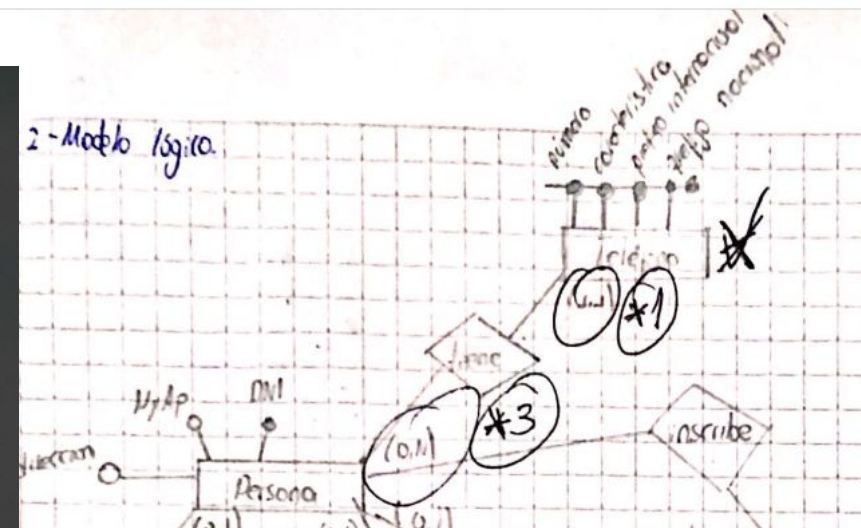 2-Modelo lógico.
número
característica
prefijo internacional
prefijo nacional
Teléfono
(1,1)
*1
tiene
NyAp
DNI
(0,N)
*3
inscribe
Persona